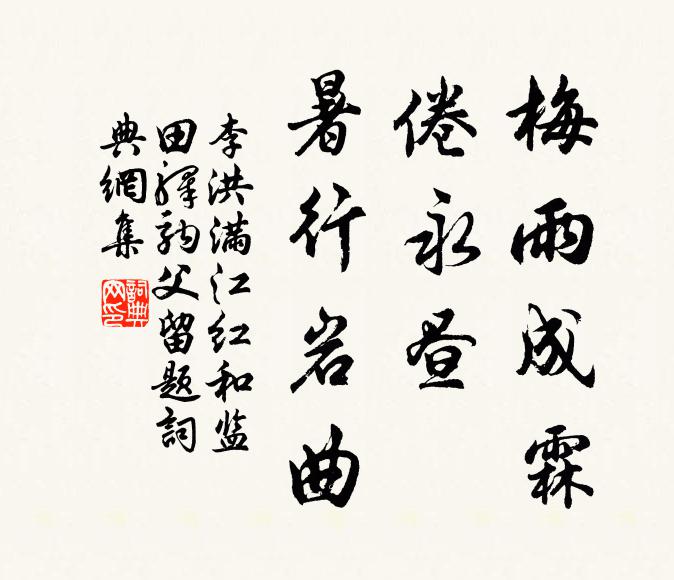 梅雨成霖
倦永昼
暑行岩曲
李洪满江红和监
田驿韵父留题詞
典網集
詞典网印